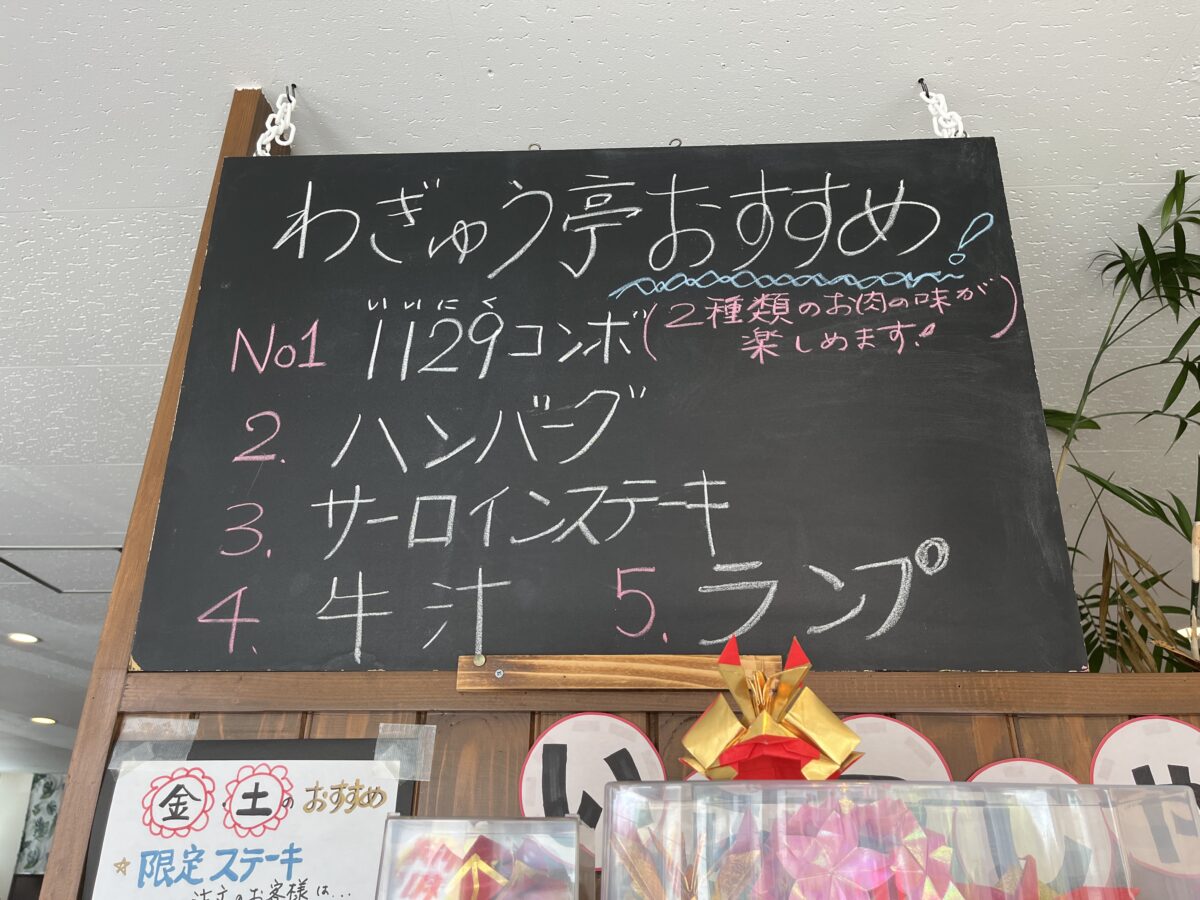 わぎゅう亭おすすめ!
いいにく
No1 1129コンボ(2種類のお肉の味が
楽しめます!)
2. ハンバーグ
3. サーロインステーキ
4. 牛汁 5. ランプ
金、土のおすすめ
☆限定ステーキ
注文のお客様は...